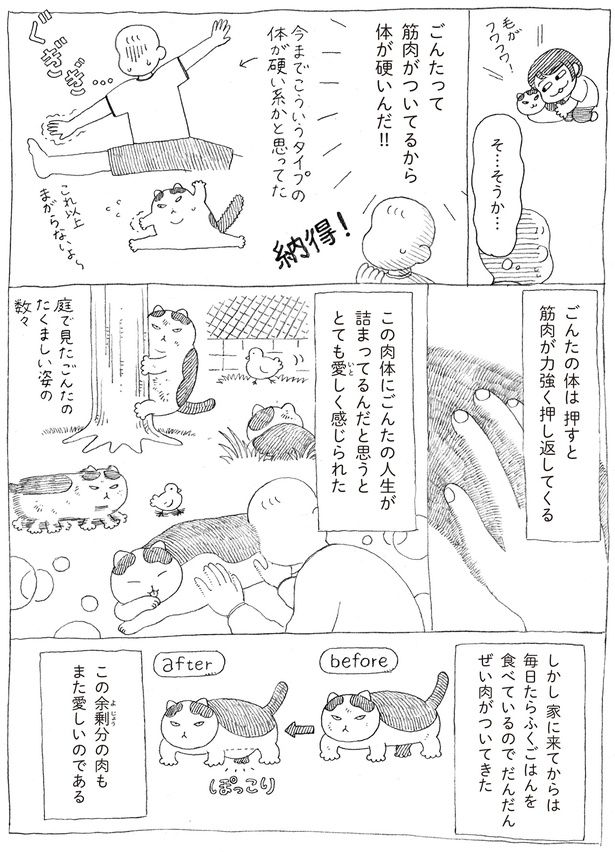 毛が
フワフワ！
そ…そうか…
ごんたって
筋肉がついてるから
体が硬いんだ!!
納得！
今までこういうタイプの
体が硬い系かと思ってた
ぐぎぎ…
これ以上
まがらないよ〜
ごんたの体は 押すと
筋肉が力強く押し返してくる
この肉体にごんたの人生が
詰まってるんだと思うと
とても愛しく感じられた
いと
庭で見たごんたの
たくましい姿の
数々
しかし 家に来てからは
毎日たらふくごはんを
食べているので だんだん
ぜい肉がついてきた
before
after
ぽっこり
この余剰分の肉も
よじょう
また愛しいのである